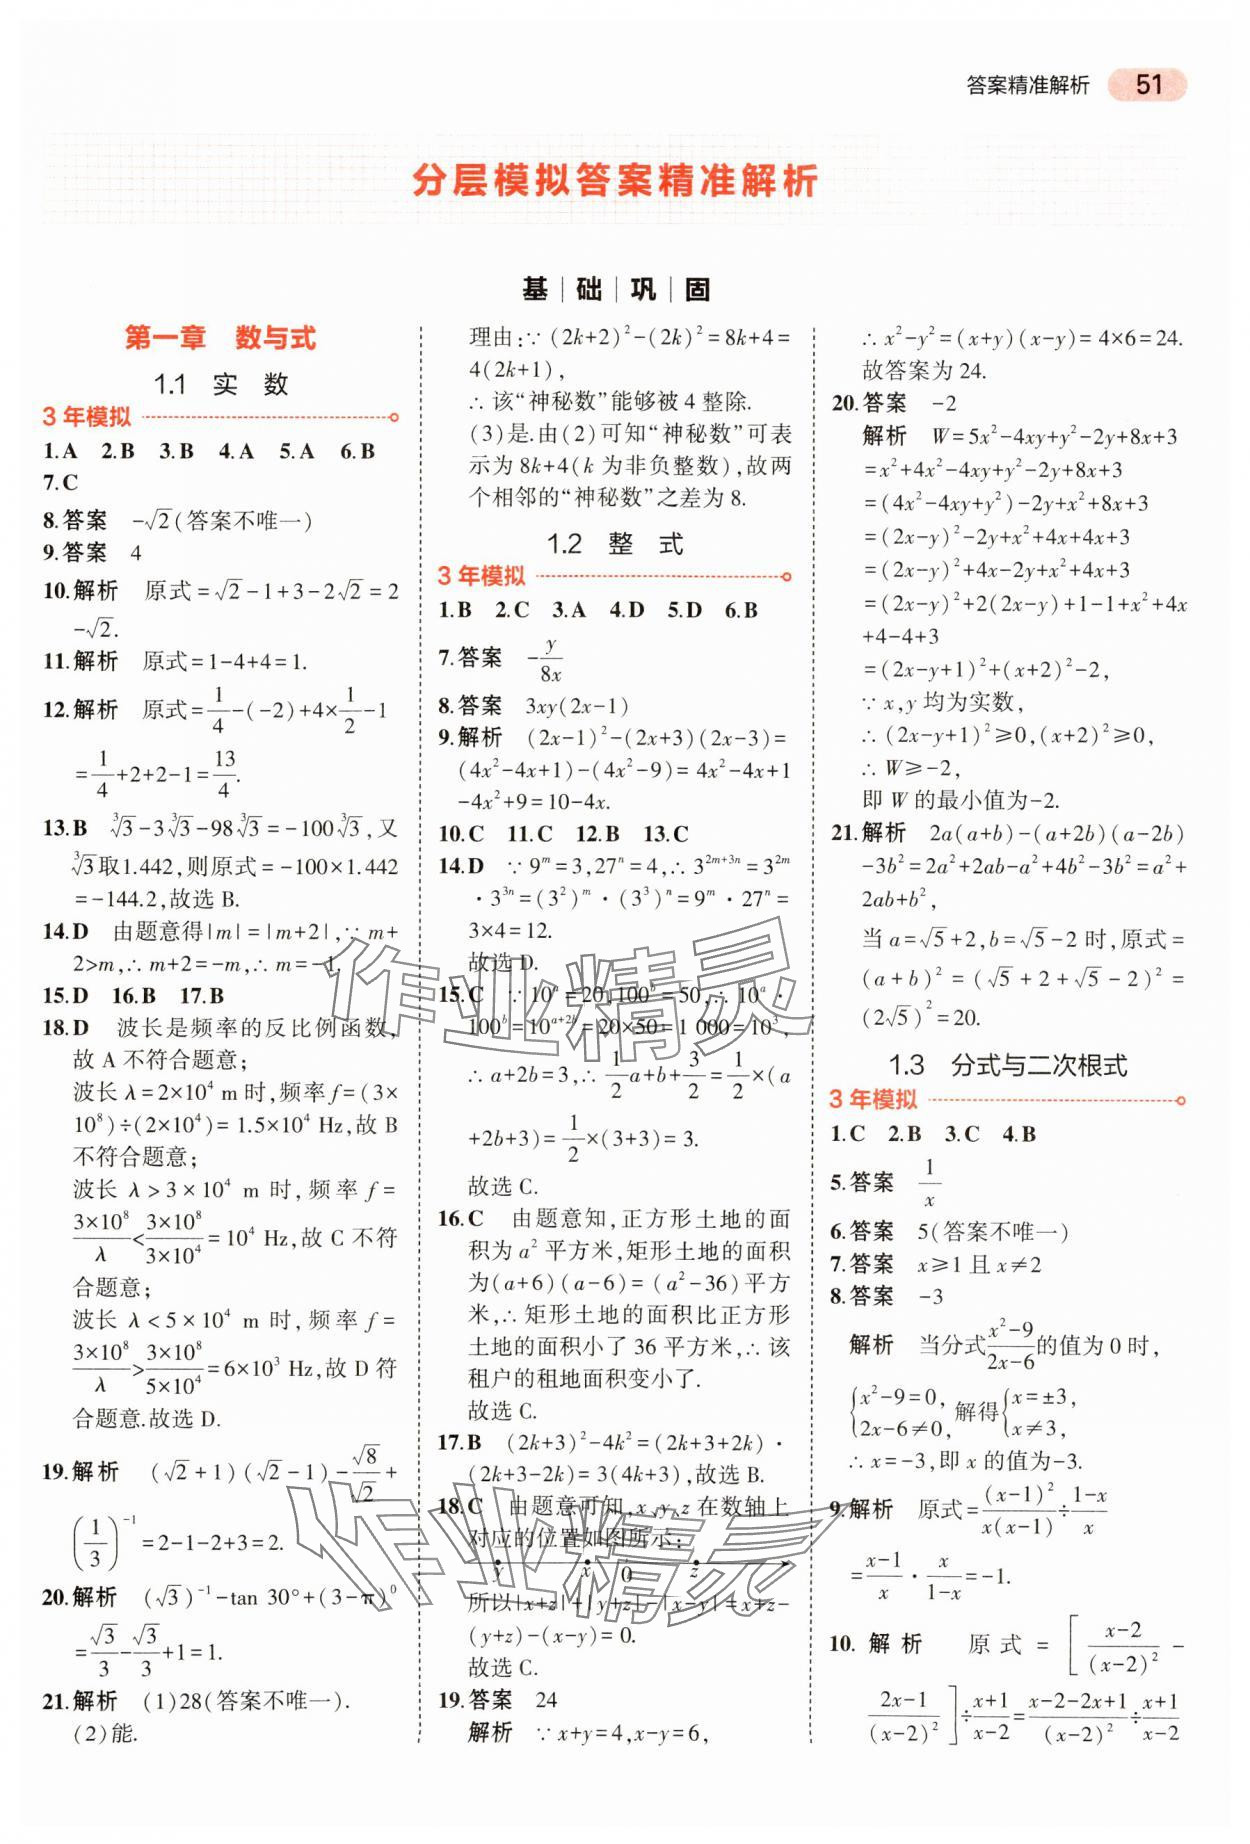 答案精准解析 51
分层模拟答案精准解析
基|础|巩|固
第一章 数与式
1.1 实 数
3年模拟
1.A 2.B 3.B 4.A 5.A 6.B
7.C
8.答案 -√2(答案不唯一)
9.答案 4
10.解析 原式=√2-1+3-2√2=2
-√2.
11.解析 原式=1-4+4=1.
12.解析 原式=1/4-(-2)+4×1/2-1
=1/4+2+2-1=13/4.
13.B ³√3-3³√3-98³√3=-100³√3,又
³√3取1.442,则原式=-100×1.442
=-144.2,故选B.
14.D 由题意得|m|=|m+2|,∵m+
2>m,∴m+2=-m,∴m=-1.
15.D 16.B 17.B
18.D 波长是频率的反比例函数,
故A不符合题意;
波长λ=2×10⁴ m时,频率f=(3×
10⁸)÷(2×10⁴)=1.5×10⁴ Hz,故B
不符合题意;
波长λ>3×10⁴ m时,频率f=
3×10⁸/λ<3×10⁸/3×10⁴=10⁴ Hz,故C不符
合题意;
波长λ<5×10⁴ m时,频率f=
3×10⁸/λ>3×10⁸/5×10⁴=6×10³ Hz,故D符
合题意.故选D.
19.解析 (√2+1)(√2-1)-√8/√2+
(1/3)⁻¹=2-1-2+3=2.
20.解析 (√3)⁻¹-tan 30°+(3-π)⁰
=√3/3-√3/3+1=1.
21.解析 (1)28(答案不唯一).
(2)能.
理由:∵(2k+2)²-(2k)²=8k+4=
4(2k+1),
∴该“神秘数”能够被4整除.
(3)是.由(2)可知“神秘数”可表
示为8k+4(k为非负整数),故两
个相邻的“神秘数”之差为8.
1.2 整 式
3年模拟
1.B 2.C 3.A 4.D 5.D 6.B
7.答案 -y/8x
8.答案 3xy(2x-1)
9.解析 (2x-1)²-(2x+3)(2x-3)=
(4x²-4x+1)-(4x²-9)=4x²-4x+1
-4x²+9=10-4x.
10.C 11.C 12.B 13.C
14.D ∵9ᵐ=3,27ⁿ=4,∴3²ᵐ⁺³ⁿ=3²ᵐ
·3³ⁿ=(3²)ᵐ·(3³)ⁿ=9ᵐ·27ⁿ=
3×4=12.
故选D.
15.C ∵10ᵃ=20,100ᵇ=50,∴10ᵃ·
100ᵇ=10ᵃ⁺²ᵇ=20×50=1 000=10³,
∴a+2b=3,∴1/2a+b+3/2=1/2×(a
+2b+3)=1/2×(3+3)=3.
故选C.
16.C 由题意知,正方形土地的面
积为a²平方米,矩形土地的面积
为(a+6)(a-6)=(a²-36)平方
米,∴矩形土地的面积比正方形
土地的面积小了36平方米,∴该
租户的租地面积变小了.
故选C.
17.B (2k+3)²-4k²=(2k+3+2k)·
(2k+3-2k)=3(4k+3),故选B.
18.C 由题意可知,x,y,z在数轴上
对应的位置如图所示:
y x 0 z
所以|x+z|+|y+z|-|x-y|=x+z-
(y+z)-(x-y)=0.
故选C.
19.答案 24
解析 ∵x+y=4,x-y=6,
∴x²-y²=(x+y)(x-y)=4×6=24.
故答案为24.
20.答案 -2
解析 W=5x²-4xy+y²-2y+8x+3
=x²+4x²-4xy+y²-2y+8x+3
=(4x²-4xy+y²)-2y+x²+8x+3
=(2x-y)²-2y+x²+4x+4x+3
=(2x-y)²+4x-2y+x²+4x+3
=(2x-y)²+2(2x-y)+1-1+x²+4x
+4-4+3
=(2x-y+1)²+(x+2)²-2,
∵x,y均为实数,
∴(2x-y+1)²≥0,(x+2)²≥0,
∴W≥-2,
即W的最小值为-2.
21.解析 2a(a+b)-(a+2b)(a-2b)
-3b²=2a²+2ab-a²+4b²-3b²=a²+
2ab+b²,
当a=√5+2,b=√5-2时,原式=
(a+b)²=(√5+2+√5-2)²=
(2√5)²=20.
1.3 分式与二次根式
3年模拟
1.C 2.B 3.C 4.B
5.答案 1/x
6.答案 5(答案不唯一)
7.答案 x≥1且x≠2
8.答案 -3
解析 当分式x²-9/2x-6的值为0时,
{x²-9=0, 2x-6≠0, 解得{x=±3, x≠3,
∴x=-3,即x的值为-3.
9.解析 原式=(x-1)²/x(x-1)÷1-x/x
=x-1/x·x/1-x=-1.
10.解析 原式=[x-2/(x-2)²-
2x-1/(x-2)²]÷x+1/x-2=x-2-2x+1/(x-2)²÷x+1/x-2
作业精灵
作业精灵